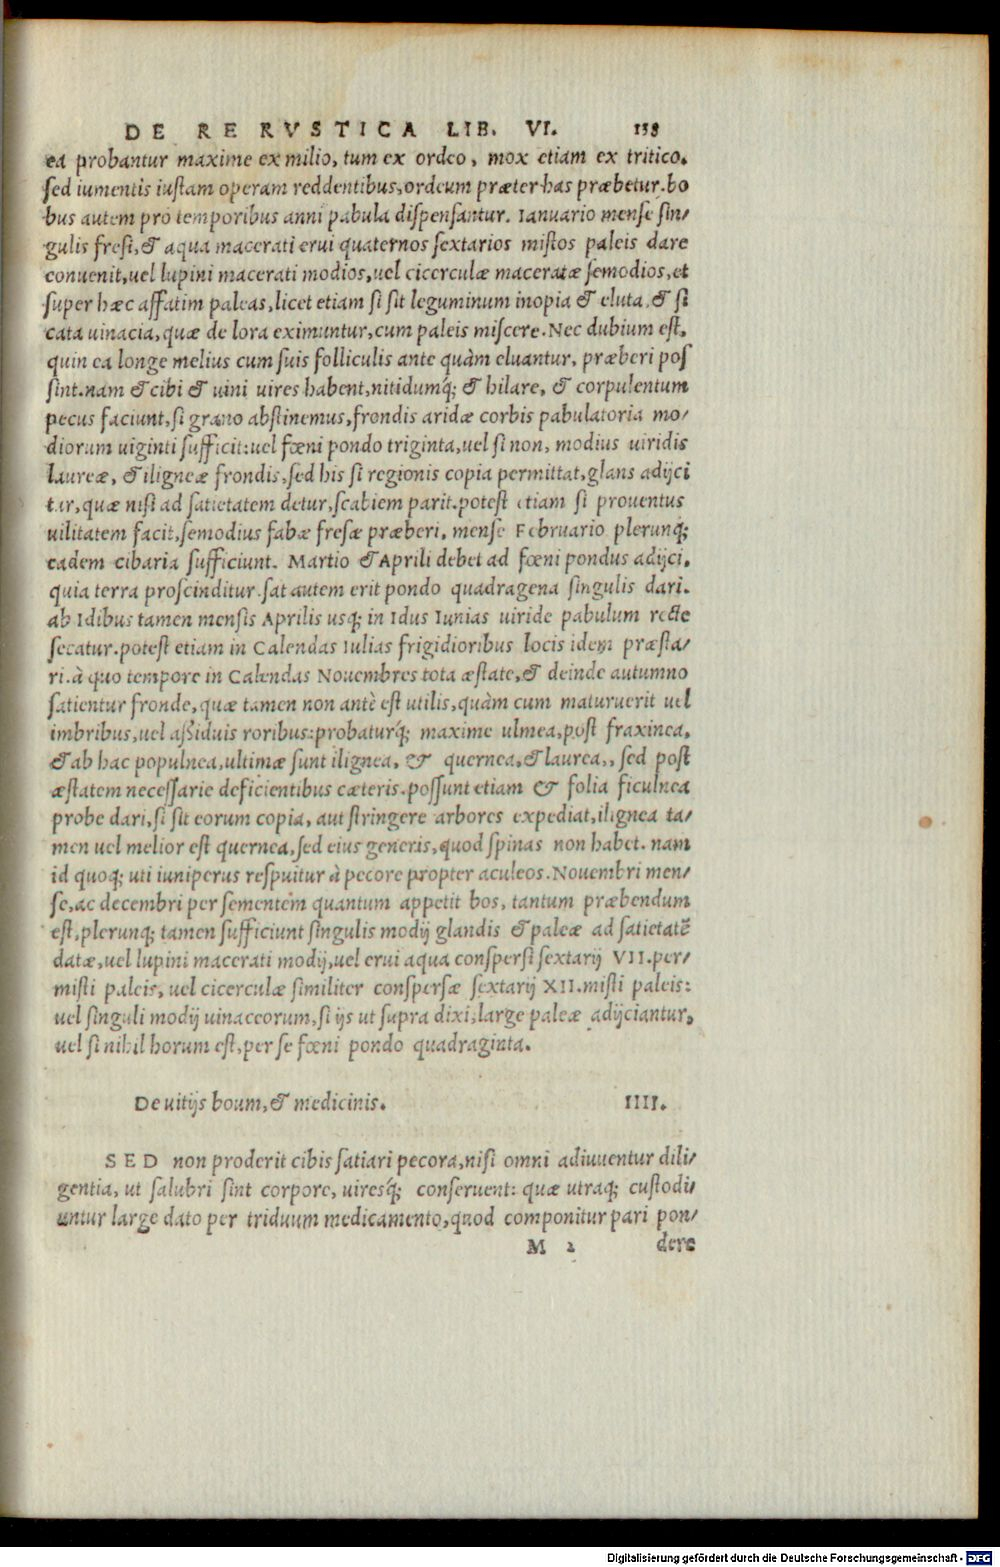 DE RE RVSTICA LIB. VI. 138
ea probantur maxime ex milio, tum ex ordeo, mox etiam ex tritico.
sed iumentis iustam operam reddentibus, ordeum præter has præbetur. bo
bus autem pro temporibus anni pabula dispensantur. Ianuario mense sin/
gulis fresi, & aqua macerati erui quaternos sextarios mistos paleis dare
conuenit, uel lupini macerati modios, uel cicerculæ maceratæ semodios, et
super hæc affatim paleas, licet etiam si sit leguminum inopia & eluta, & si
cata uinacia, quæ de lora eximuntur, cum paleis miscere. Nec dubium est,
quin ea longe melius cum suis folliculis ante quàm eluantur, præberi pos
sint. nam & cibi & uini uires habent, nitidumq́; & hilare, & corpulentum
pecus faciunt, si grano abstinemus, frondis aridæ corbis pabulatoria mo/
diorum uiginti sufficit: uel fœni pondo triginta, uel si non, modius uiridis
laureæ, & iligneæ frondis, sed his si regionis copia permittat, glans adijci
tur, quæ nisi ad satietatem detur, scabiem parit. potest etiam si prouentus
uilitatem facit, semodius fabæ fresæ præberi, mense Februario plerunq;
eadem cibaria sufficiunt. Martio & Aprili debet ad fœni pondus adijci,
quia terra proscinditur. sat autem erit pondo quadragena singulis dari.
ab Idibus tamen mensis Aprilis usq; in Idus Iunias uiride pabulum recte
secatur. potest etiam in Calendas Iulias frigidioribus locis idem præsta/
ri. à quo tempore in Calendas Nouembres tota æstate, & deinde autumno
satientur fronde, quæ tamen non antè est utilis, quàm cum maturuerit uel
imbribus, uel aßiduis roribus: probaturq́; maxime ulmea, post fraxinea,
& ab hac populnea, ultimæ sunt ilignea, & quernea, & laurea,, sed post
æstatem necessarie deficientibus cæteris. possunt etiam & folia ficulnea
probe dari, si sit eorum copia, aut stringere arbores expediat, ilignea ta/
men uel melior est quernea, sed eius generis, quod spinas non habet. nam
id quoq; uti iuniperus respuitur à pecore propter aculeos. Nouembri men/
se, ac decembri per sementem quantum appetit bos, tantum præbendum
est, plerunq; tamen sufficiunt singulis modij glandis & paleæ ad satietatē
datæ, uel lupini macerati modij, uel erui aqua conspersi sextarij VII. per/
misti paleis, uel cicerculæ similiter conspersæ sextarij XII. misti paleis:
uel singuli modij uinaceorum, si ijs ut supra dixi, large paleæ adijciantur,
uel si nihil horum est, per se fœni pondo quadraginta.
De uitijs boum, & medicinis. IIII.
SED non proderit cibis satiari pecora, nisi omni adiuuentur dili/
gentia, ut salubri sint corpore, uiresq́; conseruent: quæ utraq; custodi/
untur large dato per triduum medicamento, quod componitur pari pon/
M 2 dere
Digitalisierung gefördert durch die Deutsche Forschungsgemeinschaft - DFG